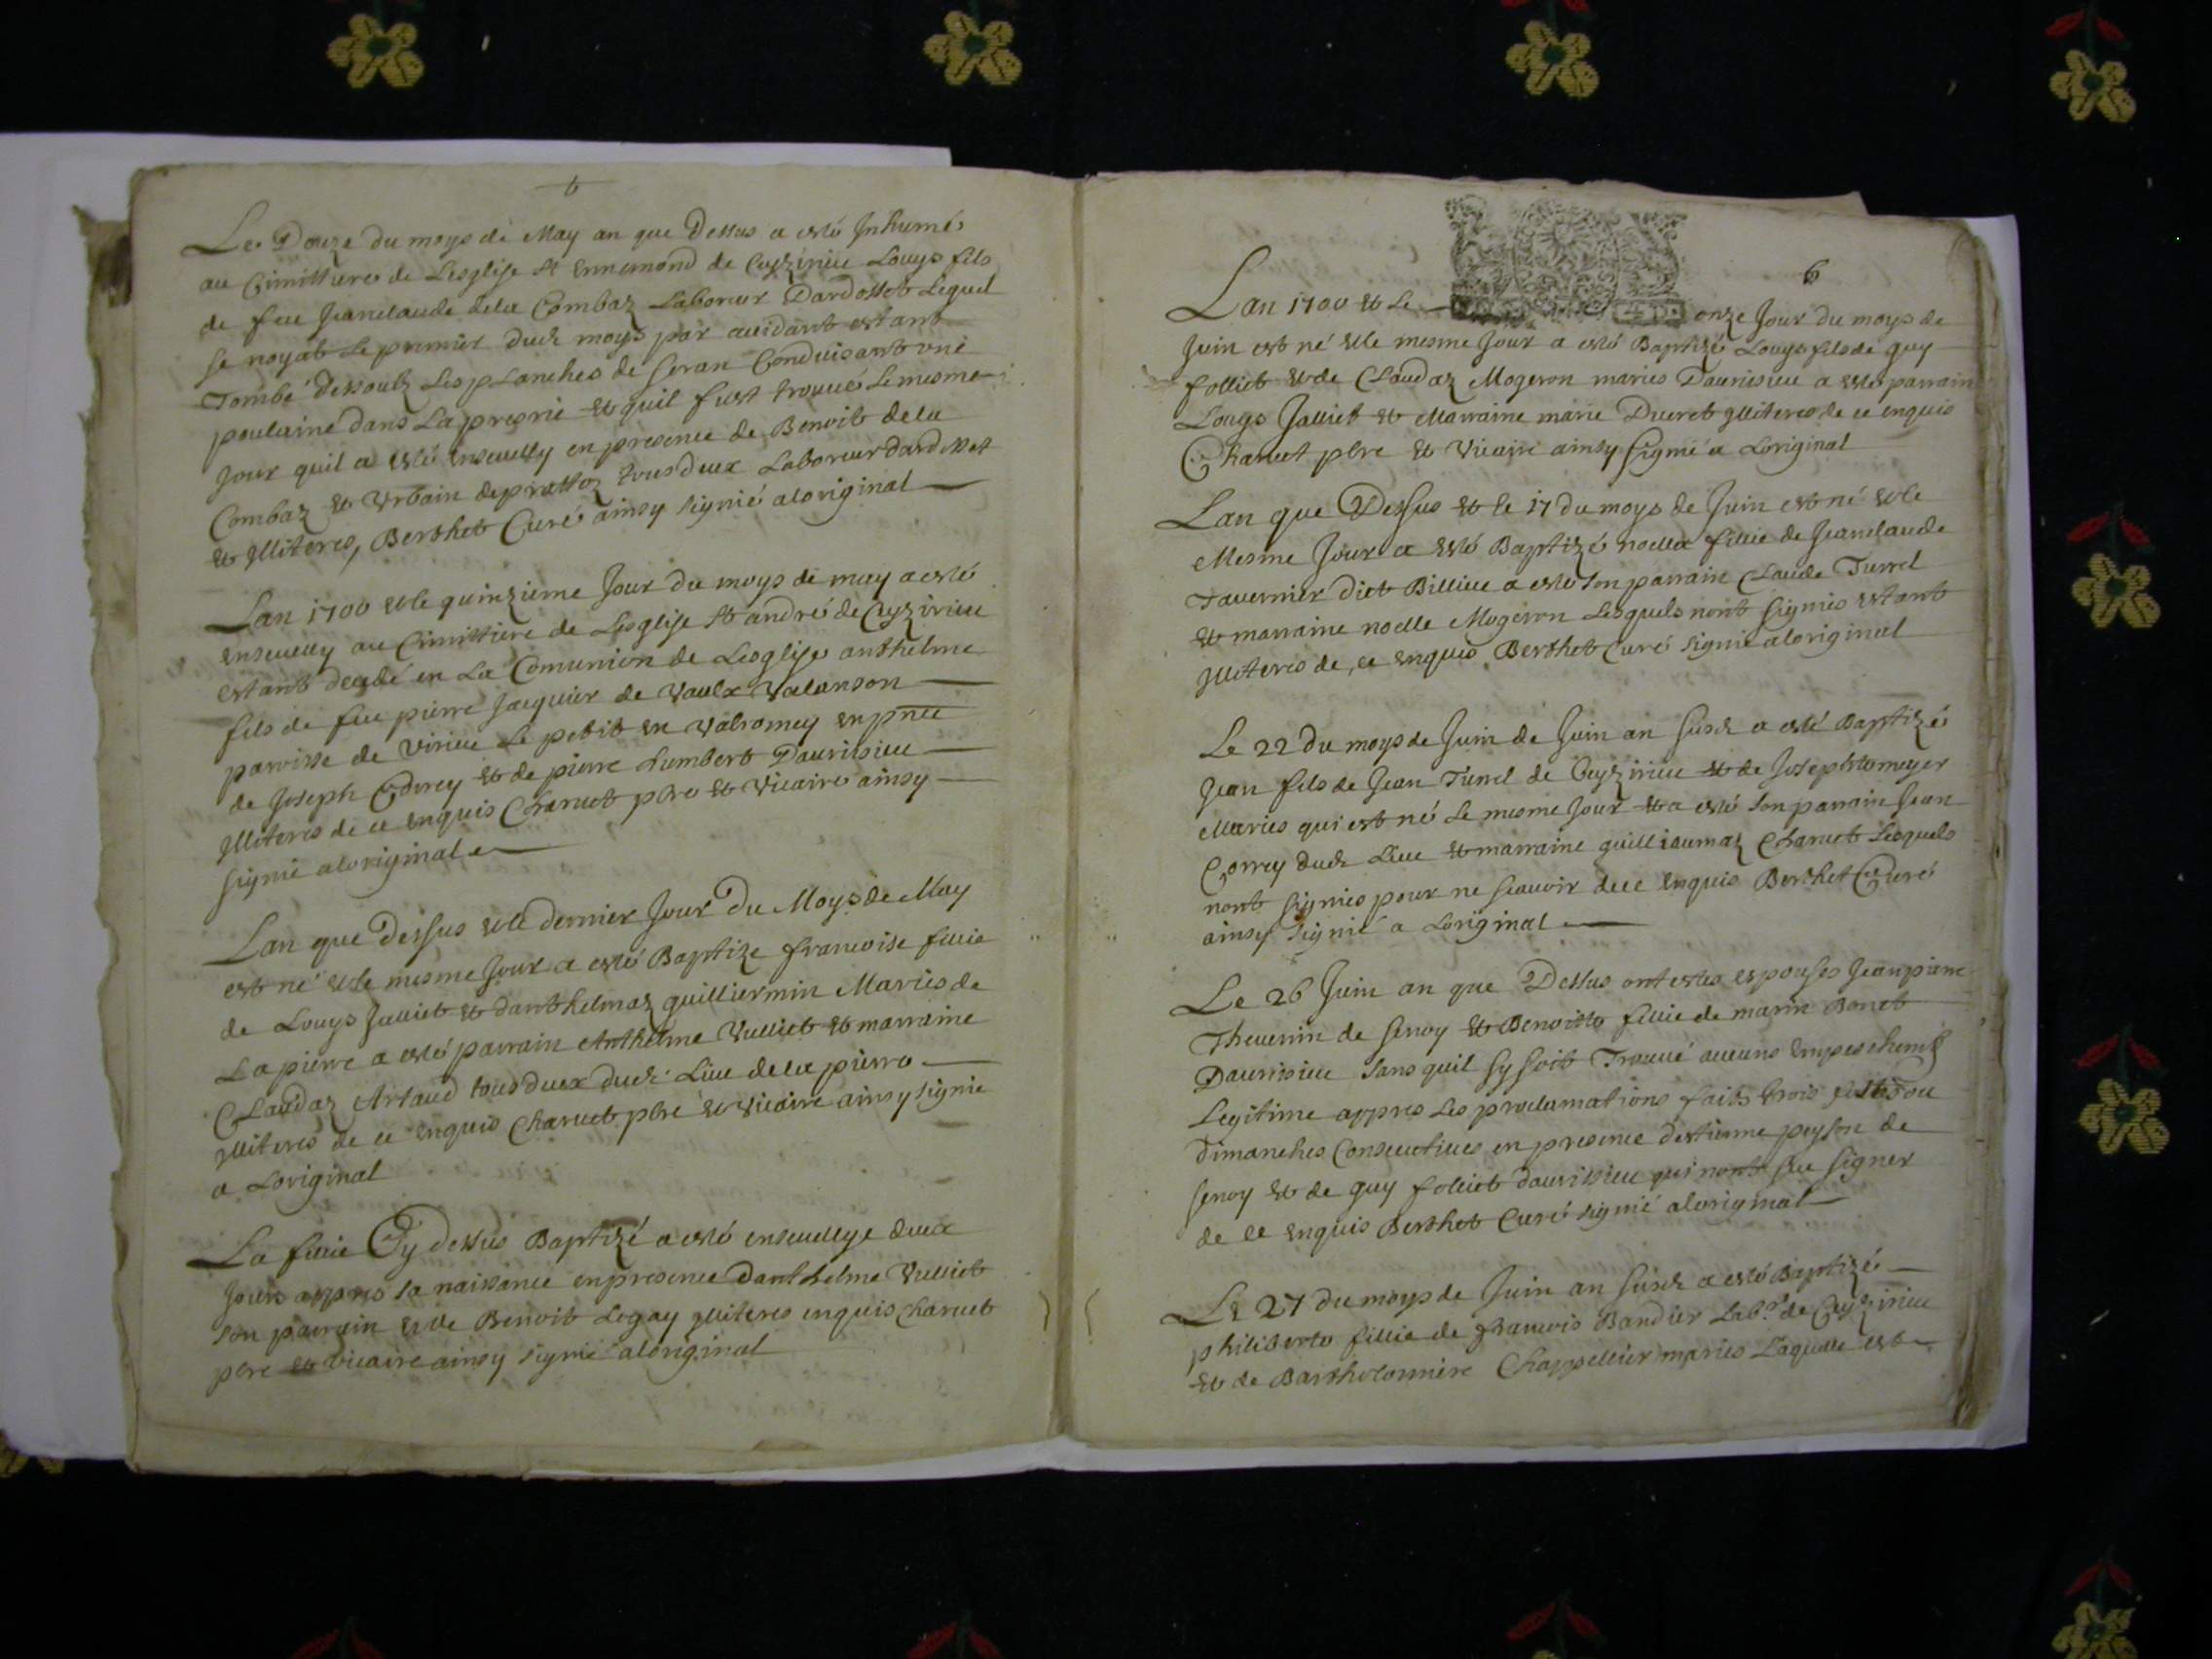 6
Le Douze du moys de May an que Dessus a esté Inhumé
au Cimittiere de Lesglise St Ennemond de Ceyzirieu Louys fils
de feu Jeanclaude dela Combaz Laboreur Dardosset Lequel
se noyat Le premier dud. moys par accidant estant
Tombé dessoubz Les planches de Seran Conduisant une
poulaine dans La prerie et quil fust trouué Le mesme
Jour quil a esté enseuelly en presence de Benoit dela
Combaz et Urbain deprattoz tous deux Laboreur dardosset
et Illiteres, Berthet Curé ainsy signié aloriginal
Lan 1700 et le quinzieme Jour du moys de may a esté
enseuelly au Cimittiere de Lesglise St andré de Ceyzirieu
estant decedé en La Comunion de Lesglise anthelme
fils de feu pierre Jacquier de Vaulx Valanson
parroisse de Virieu Le petit en Valromey en pnce
de Joseph Correy et de pierre Lumbert Daurissieu
Illiteres de ce enquis Charuet pbre et Vicaire ainsy
signié aloriginal
Lan que Dessus et le dernier Jour Du Moys de May
est né et le mesme Jour a esté Baptize francoise fillie
de Louys Julliet et danthelmaz guilliermin Maries de
La pierre a esté parrain Anthelme Vulliet et marraine
Claudaz Artaud tous deux dud. Lieu dela pierre
Illiteres de ce enquis Charuet pbre et Vicaire ainsy signie
a Loriginal
La fillie Cy dessus Baptizé a esté enseuellye deux
Jours appres sa naissance en presence Danthelme Vulliet
son parrain et de Benoit Legay Illiteres enquis Charuet
pbre et vicaire ainsy signié aloriginal
6
Lan 1700 et Le onze Jour du moys de
Juin est né et le mesme Jour a esté Baptizé Louys fils de guy
folliet et de Claudaz Mogeron maries Daurissieu a esté parrain
Louys Julliet et Marraine marie Ducret Illiteres de ce enquis
Charuet pbre et Vicaire ainsy signié a Loriginal
Lan que Dessus et le 17 du moys de Juin est né et le
Mesme Jour a esté Baptizé noella fillie de Jeanclaude
Tauernier dict Billieu a esté son parrain Claude Turrel
et marraine noelle Mogeron Lesquels nont signies estant
Illiteres de ce enquis Berthet Curé signié aloriginal
Le 22 du moys de Juin de Juin an susd. a esté Baptizé
Jean fils de Jean Turrel de Ceyzirieu et de Josephte meyer
Maries qui est né Le mesme Jour et a esté son parrain Jean
Correy dud. Lieu et marraine guilliaumaz Charuet Lesquels
nont signies pour ne scauoir de ce enquis Berthet Curé
ainsy signié a Loriginal
Le 26 Juin an que Dessus ont estes espouses Jeanpierre
Theuenin de senoy et Benoitte fillie de marin Bonet
Daurissieu sans quil sy soit Trouué aucuns empeschemts
Legitime appres Les proclamations faits trois festes ou
Dimanches Consecutiues en presence destienne peyson de
senoy et de guy folliet daurissieu qui nont sceu signer
de ce enquis Berthet Curé signié aloriginal
Le 27 du moys de Juin an susd. a esté Baptizé
philiberte fillie de francois Bandier Labr de Ceyzirieu
et de Bartholomiere Chappellier maries Laquelle est